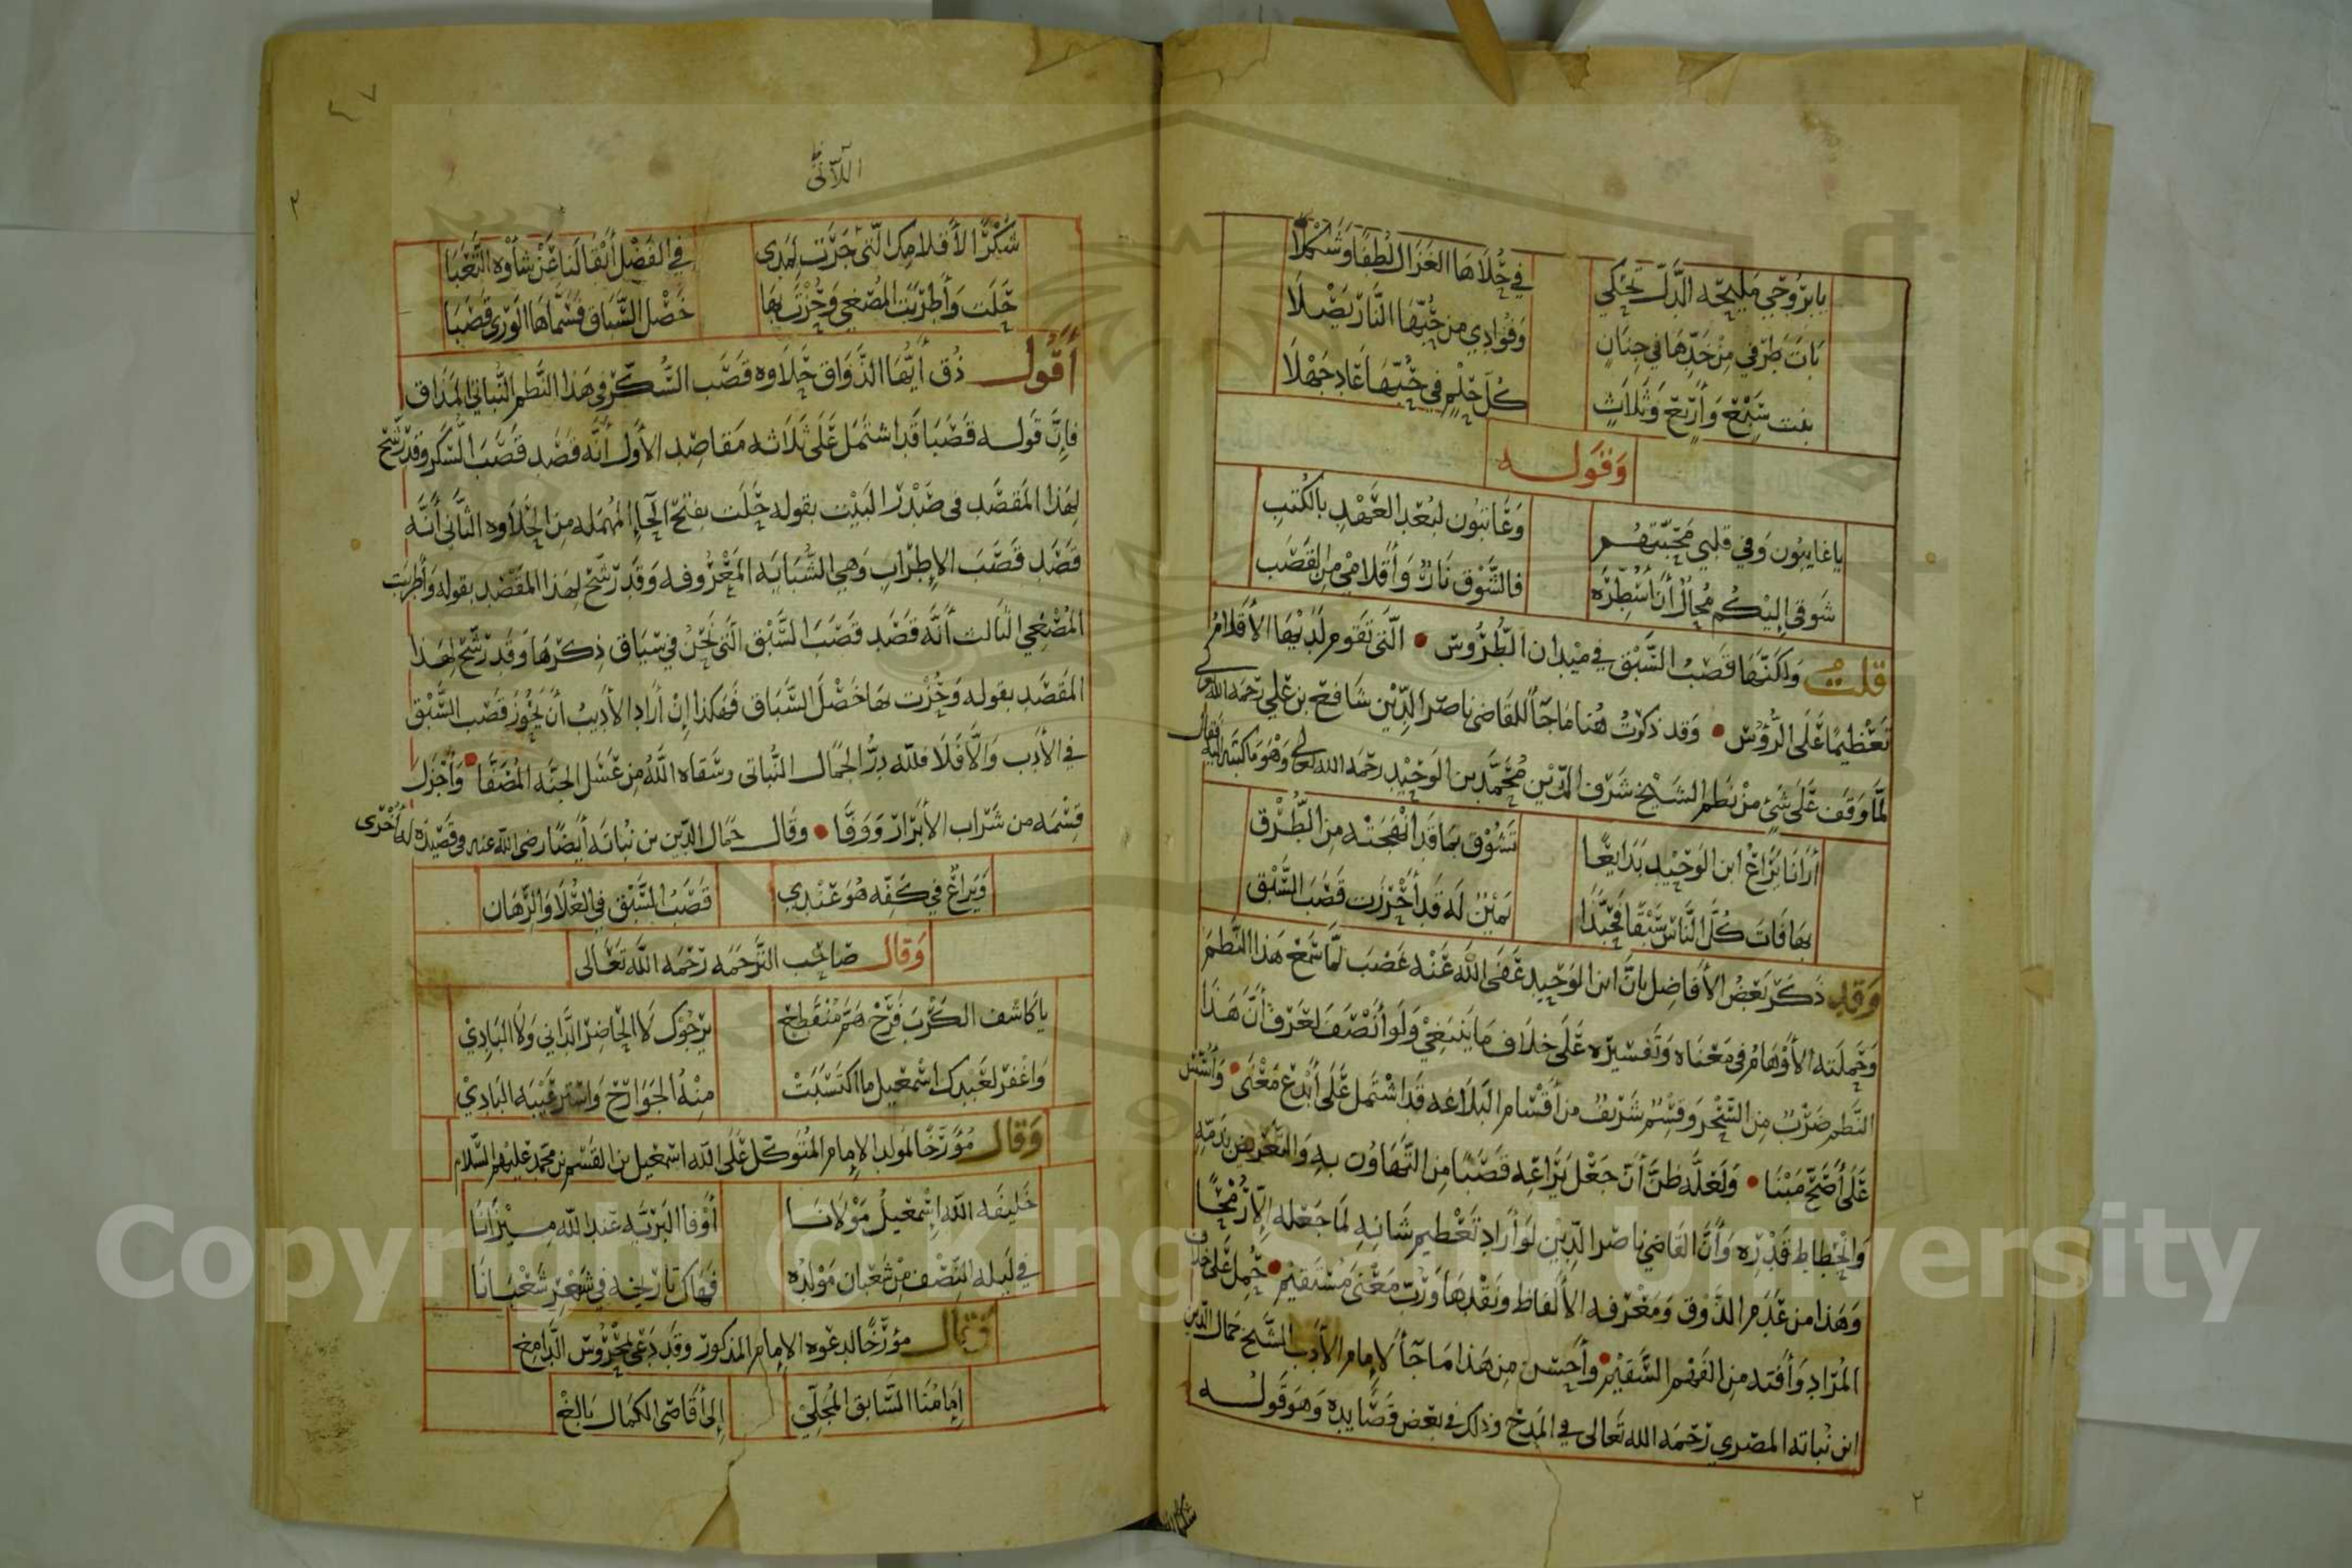 يا بروحي مليحة الدل تحكي في حلاها الغزال لطفا وشكلا
بات طرفي من خدها في جنان وفؤادي من حبها النار يصلا
بنت سبع وأربع وثلاث كل حلم في حبها عاد جهلا
وقوله
يا غايبون وفي قلبي محبتهم وعاتبون لبعد العهد بالكتب
شوقي إليكم محال أن أسطره فالشوق نار وأقلامي من القصب
قلت ولكنها قصب السبق في ميدان الطروس • التي تقوم لديها الأقلام
تعظيما على الرؤوس • وقد ذكرت هنا ما جاء للقاضي ناصر الدين شافع بن علي رحمه الله
لما وقف على شيء من نظم الشيخ شرف الدين محمد بن الوحيد رحمه الله تعالى وهو ما كتبه إليه فقال
أرانا يراع ابن الوحيد بدايعا تشوق بما قد انهجته من الطرق
بها فات كل الناس سبقا فحبذا يمين له قد أحرزت قصب السبق
وقد ذكر بعض الأفاضل بان ابن الوحيد عفى الله عنه غضب لما سمع هذا النظم
وحملته الأوهام في معناه وتفسيره على خلاف ما ينبغي ولو أنصف لعرف أن هذا
النظم ضرب من السحر وقسم شريف من أقسام البلاغه قد اشتمل على أبدع معنى • وأسس
على أصح مبنا • ولعله ظن أن جعل يراعه قصبا من التهاون به والتعريض بذمه
وانحطاط قدره وأن القاضي ناصر الدين لو أراد تعظيم شانه لما جعله إلا رمحا
وهذا من عدم الذوق ومعرفه الألفاظ ونقدها ورب معنى مستقيم • حمل على خلاف
المراد وأفته من الفهم السقيم • وأحسن من هذا ما جاء لإمام الأدب الشيخ جمال الدين
ابن نباته المصري رحمه الله تعالى في المدح وذلك في بعض قصايده وهو قوله
شكرا
٢
٤٧
اللآتي
٣
شكرا لأقلامك التي جرت لمدى في الفضل أبقا لنا عن شأوه التعبا
حلت وأطربت المصغي وحزت بها خصل السباق فسماها الورى قصبا
أقول ذق أيها الذواق حلاوه قصب السكر في هذا النظم النباتي المذاق
فإن قوله قصبا قد اشتمل على ثلاثه مقاصد الأول أنه قصد قصب السكر وقد رشح
لهذا المقصد في صدر البيت بقوله حلت بفتح الحاء المهمله من الحلاوه الثاني أنه
قصد قصب الإطراب وهي الشبابه المعروفه وقد رشح لهذا المقصد بقوله وأطربت
المصغي الثالث أنه قصد قصب السبق التي نحن في سياق ذكرها وقد رشح لهذا
المقصد بقوله وحزت بها خصل السباق فهكذا إن أراد الأديب أن يحوز قصب السبق
في الأدب والا فلا فلله در الجمال النباتي وسقاه الله من عسل الجنه المصفا • وأجزل
قسمه من شراب الأبرار ووفا • وقال جمال الدين بن نباته أيضا رضى الله عنه في قصيدة له أخرى
ويراع في كفه هو عندي قصب السبق في العلا والرهان
وقال صاحب الترجمه رحمه الله تعالى
يا كاشف الكرب فرج هم منقطع يرجوك لا الحاضر الداني ولا البادي
واغفر لعبدك اسمعيل ما اكتسبت منه الجوارح واستر عيبه البادي
وقال مؤرخا لمولد الإمام المتوكل على الله اسمعيل بن القسم بن محمد عليهم السلام
خليفه الله إسمعيل مولانا أوفا البريه عند الله ميزانا
في ليله النصف من شعبان مولده فهاك تاريخه في شهر شعبانا
وقال مؤرخا لدعوه الإمام المذكور وقد دعى بمحروس الدامغ
إمامنا السابق المجلي إلى أقاصي الكمال بالغ